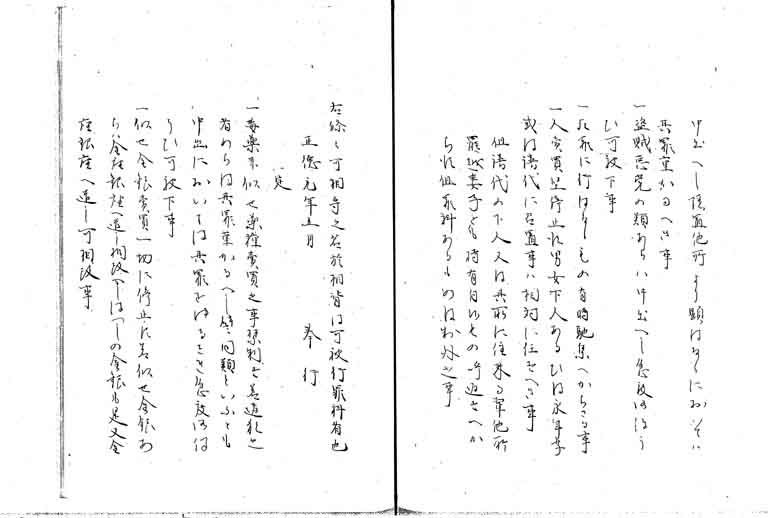 申出へし隠置他所より顕はるゝにおいては
其罪重かるへき事
一盗賊悪党の類あらハ申出へし急度御ほう
ひ可被下事
一死罪に行はるゝもの有時馳集へからさる事
一人売買堅停止尤男女下人あるひは永年季
或は譜代に召置事ハ相対に任すへき事
但譜代の下人又は其所に住来る輩他所
罷越妻子をも持有付候もの呼返すへか
らす但罪科あるものは制外之事
右條々可相守之若於相背は可被行罪科者也
正徳元年五月 奉行
定
一毒薬並似せ薬種売買之事禁制若違犯之
者あらは其罪重かるへし縦同類といふとも
申出においては其罪をゆるされ急度御ほう
ひ可被下事
一似せ金銀売買一切に停止す若似せ金銀あ
らハ金座銀座へ遣し相改へしはつしの金銀も是又金
座銀座へ遣し可相改事